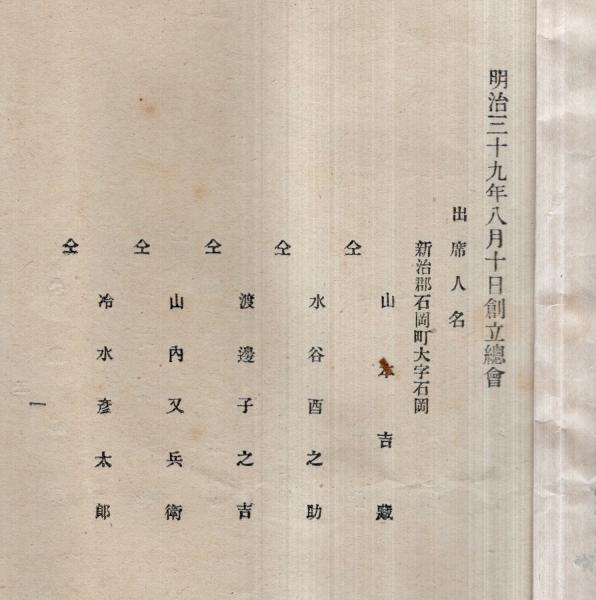 明治三十九年八月十日創立總會
出席人名
新治郡石岡町大字石岡
山本吉藏
仝
水谷酉之助
仝
渡邊子之吉
仝
山內又兵衛
仝
冷水彥太郎
仝
一